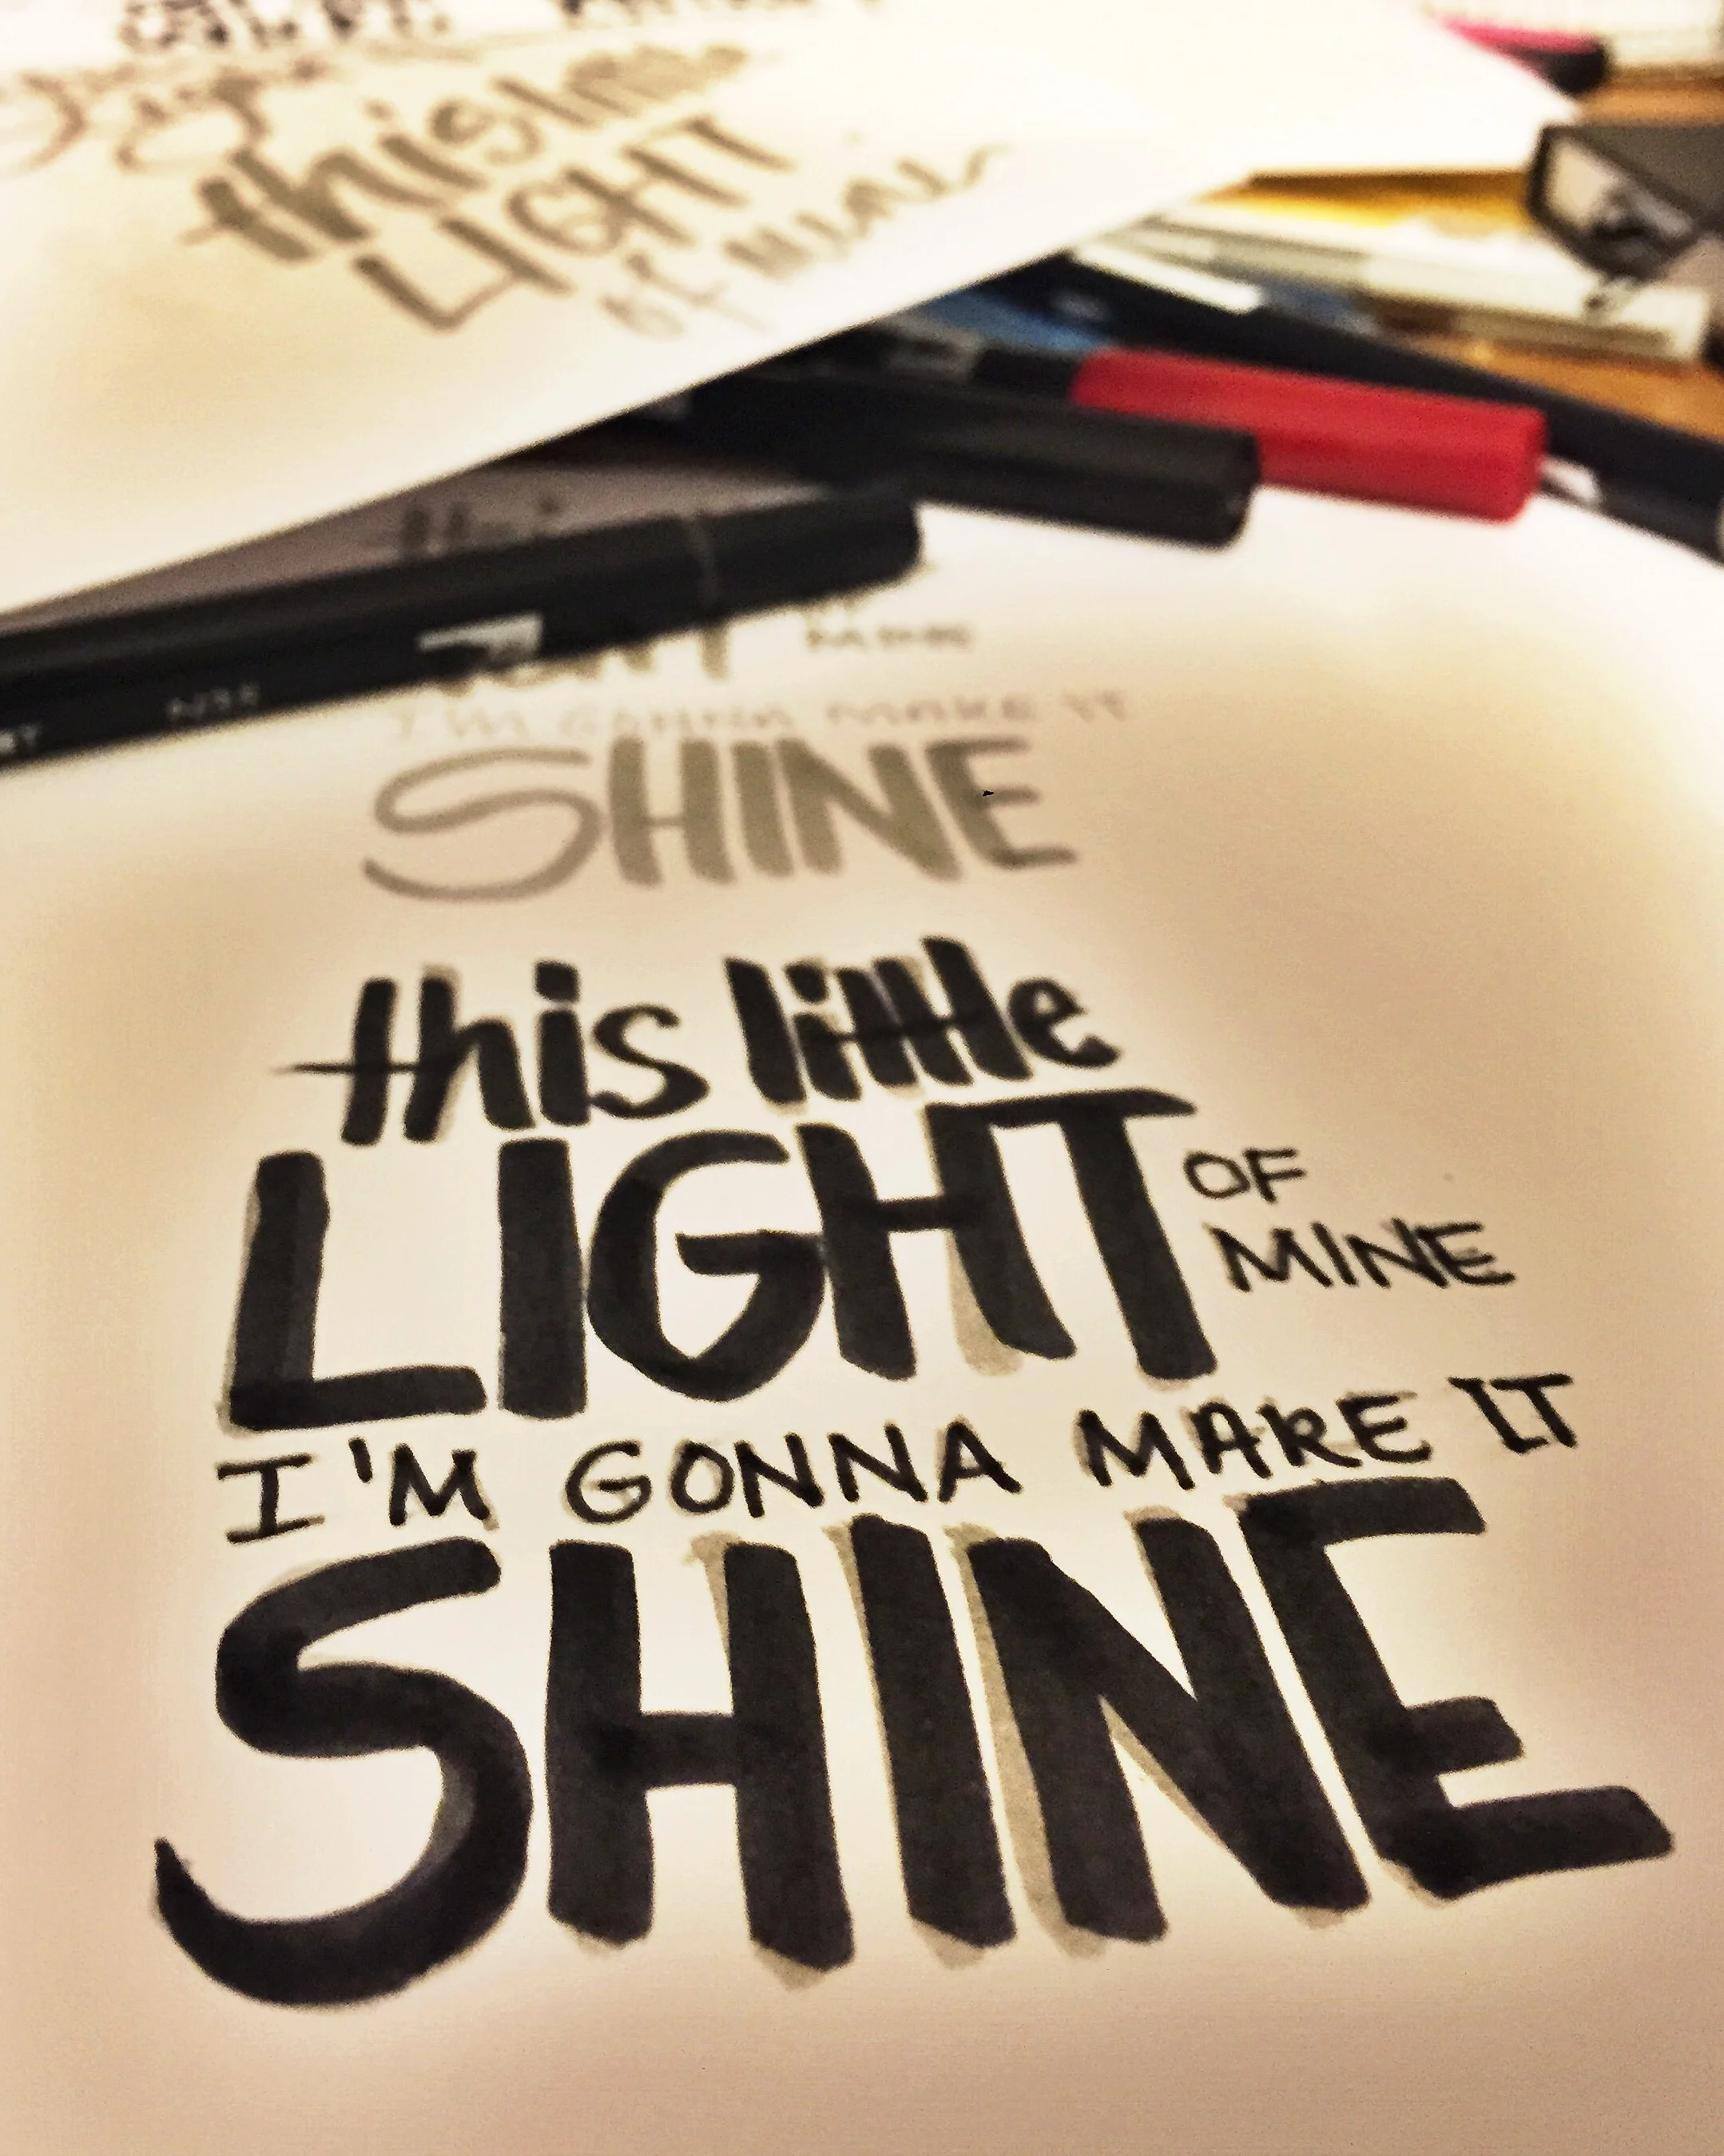 this little
LIGHT
of Mine
MINE
I'M GONNA MAKE IT
SHINE
this little
LIGHT OF
MINE
I'M GONNA MAKE IT
SHINE